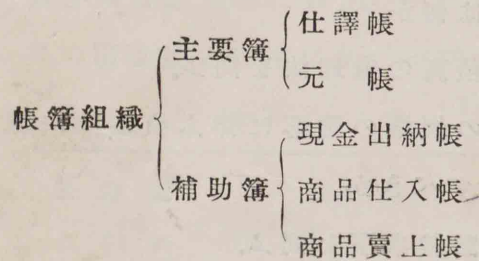 帳簿組織
主要簿
仕譯帳
元帳
補助簿
現金出納帳
商品仕入帳
商品賣上帳